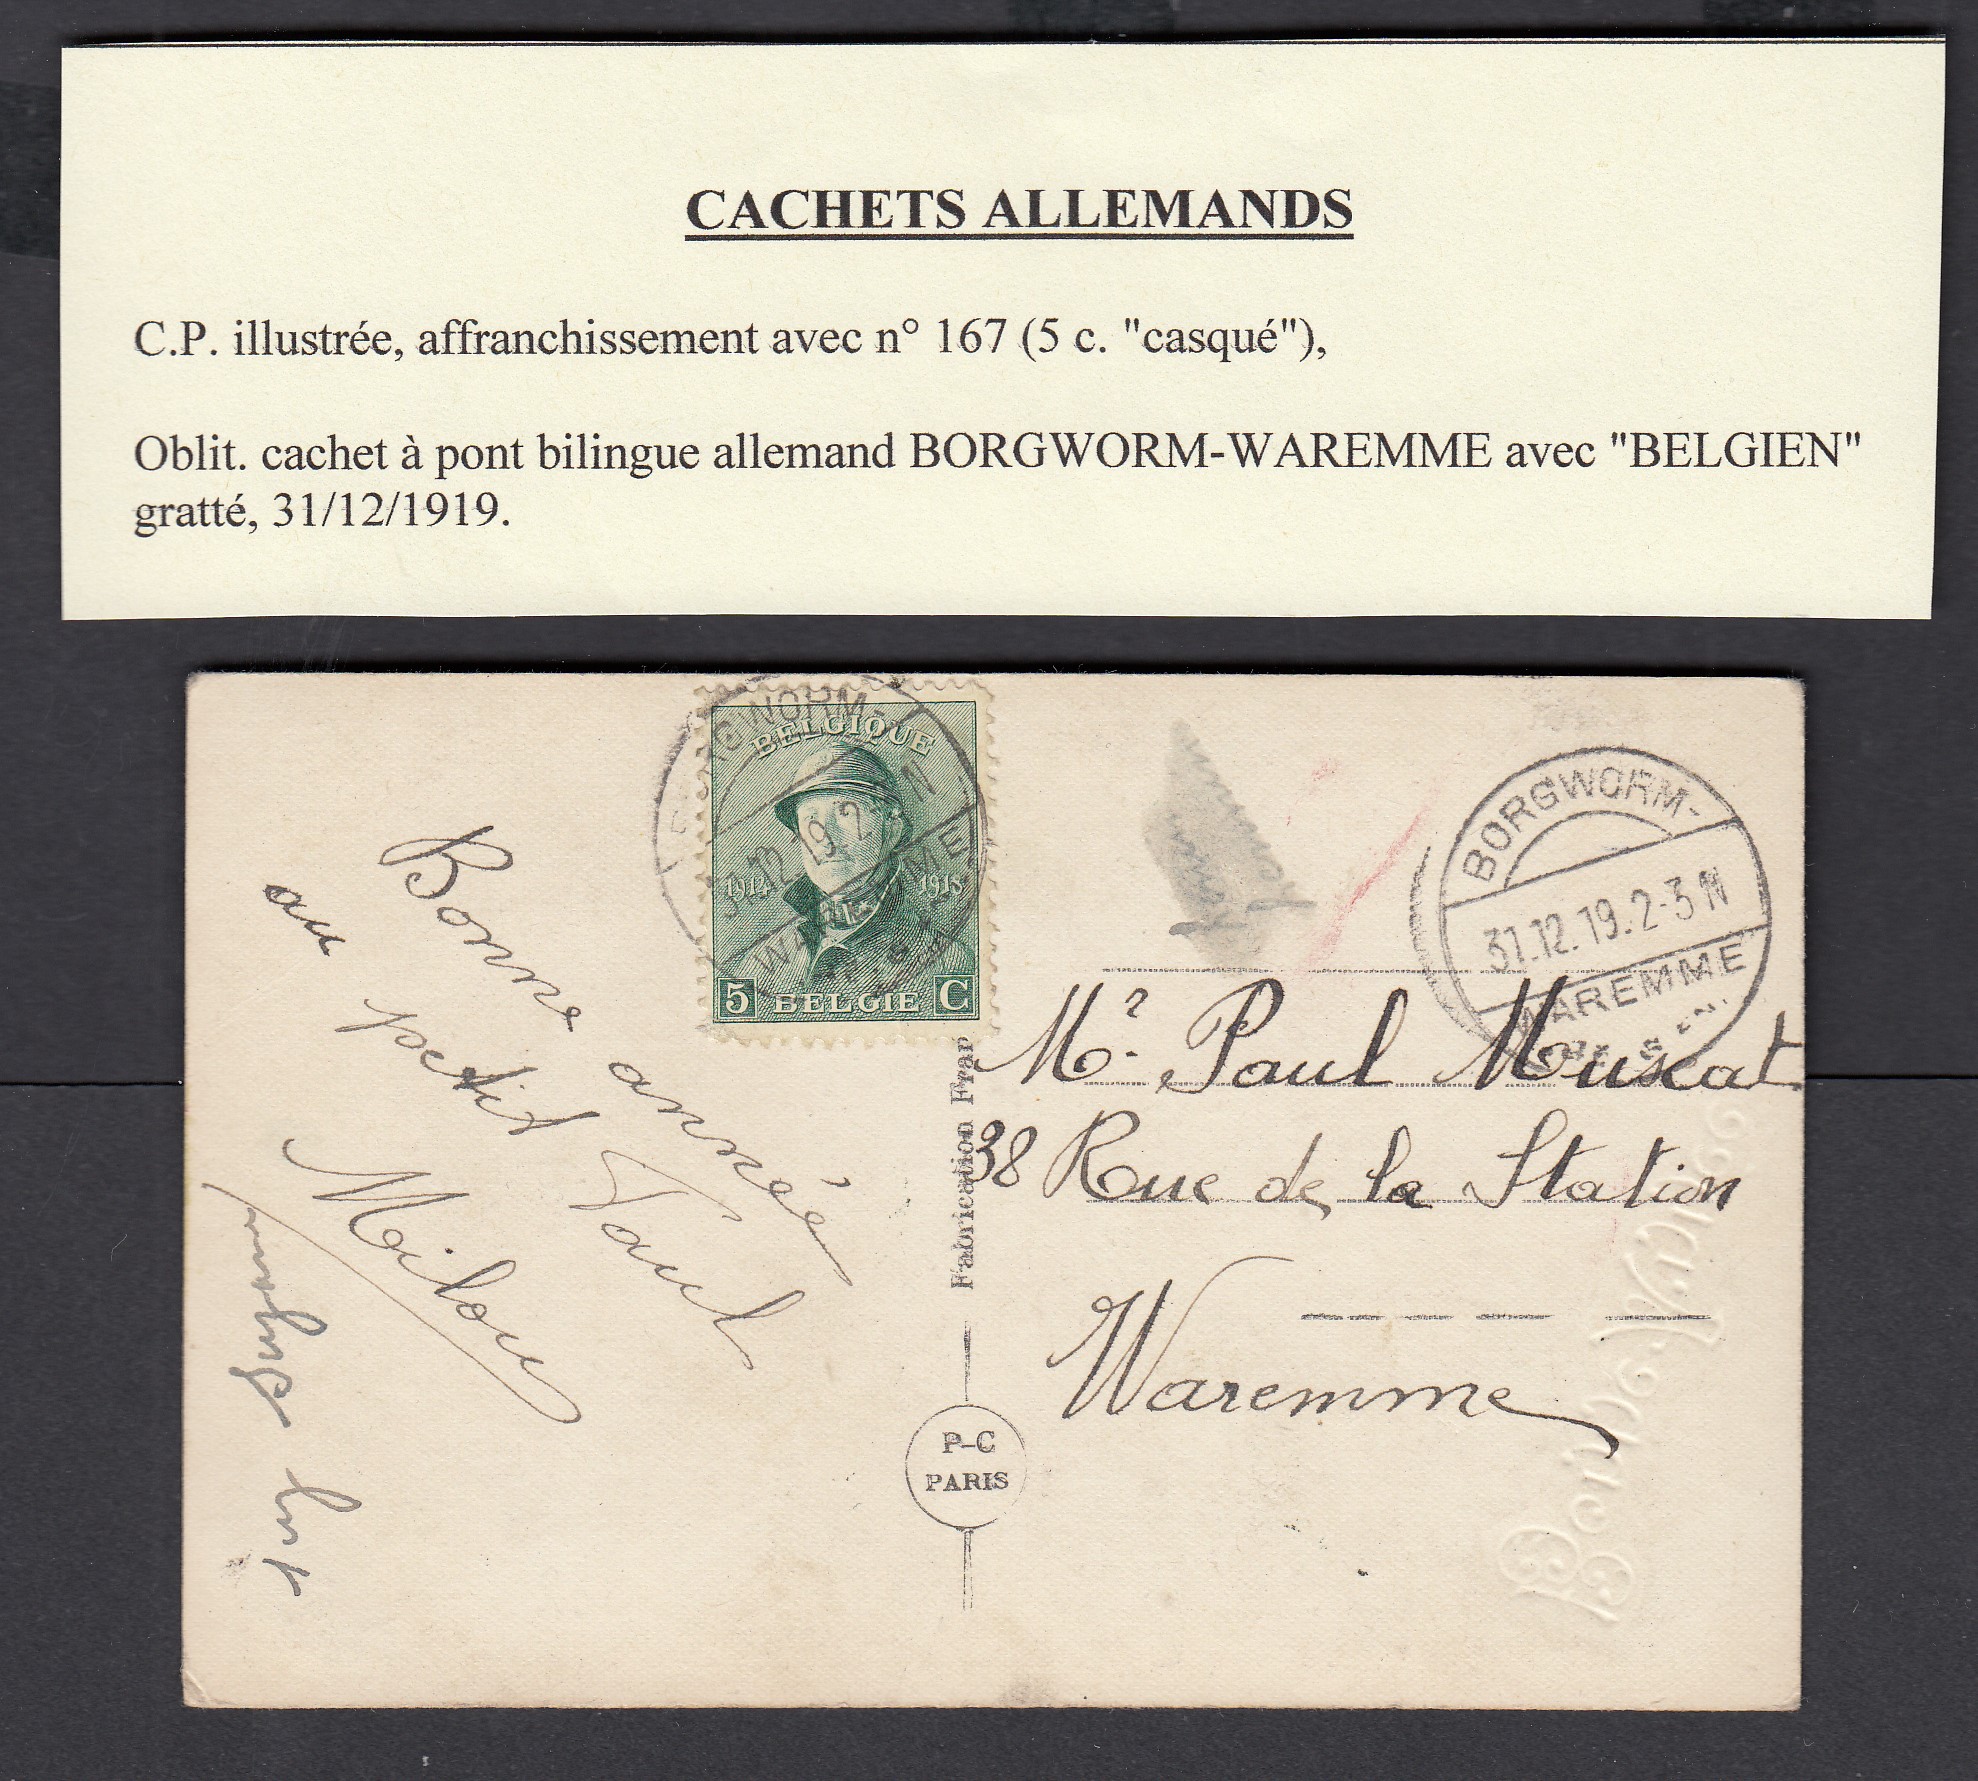 CACHETS ALLEMANDS
C.P. illustrée, affranchissement avec n° 167 (5 c. "casqué"),
Oblit. cachet à pont bilingue allemand BORGWORM-WAREMME avec "BELGIEN"
gratté, 31/12/1919.
BORGWORM-
12.19.2 N
WAREMME
BELGIQUE
1914 1918
5 BELGIE C
BORGWORM-
31.12.19.2-3 N
WAREMME
Bonne année
au petit Paul
Mr Paul
38 Rue de la Station
Waremme
Fabrication Fran
P-C
PARIS